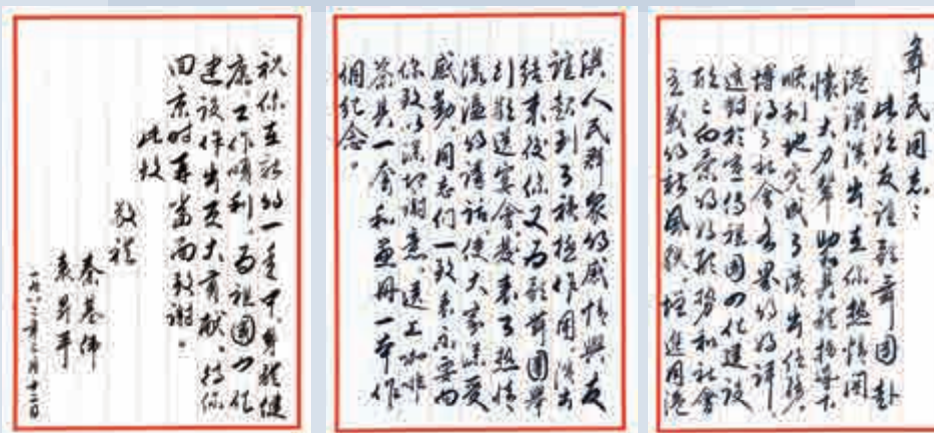 彝民同志：
此次友谊歌舞团赴
港澳演出，在你热情关
怀、大力帮助和具体指导下
顺利地完成了演出任务，
博得了社会各界的好评，
这对于宣传祖国四化建设
欣欣向荣的好形势和社会
主义的新风貌，增进同港
澳人民群众的感情与友
谊起到了积极作用。演出
结束后，你又为歌舞团举
行欢送宴会，发表了热情
洋溢的讲话，使大家深受
感动。同志们一致表示要向
你致以深切谢意。送上咖啡
茶具一套和画册一本作
个纪念。
祝你在新的一年中，身体健
康、工作顺利，为祖国四化
建设作出更大贡献。待你
回京时再当面致谢。
此致
敬礼
秦基伟
袁升平
一九八三年 月十二日